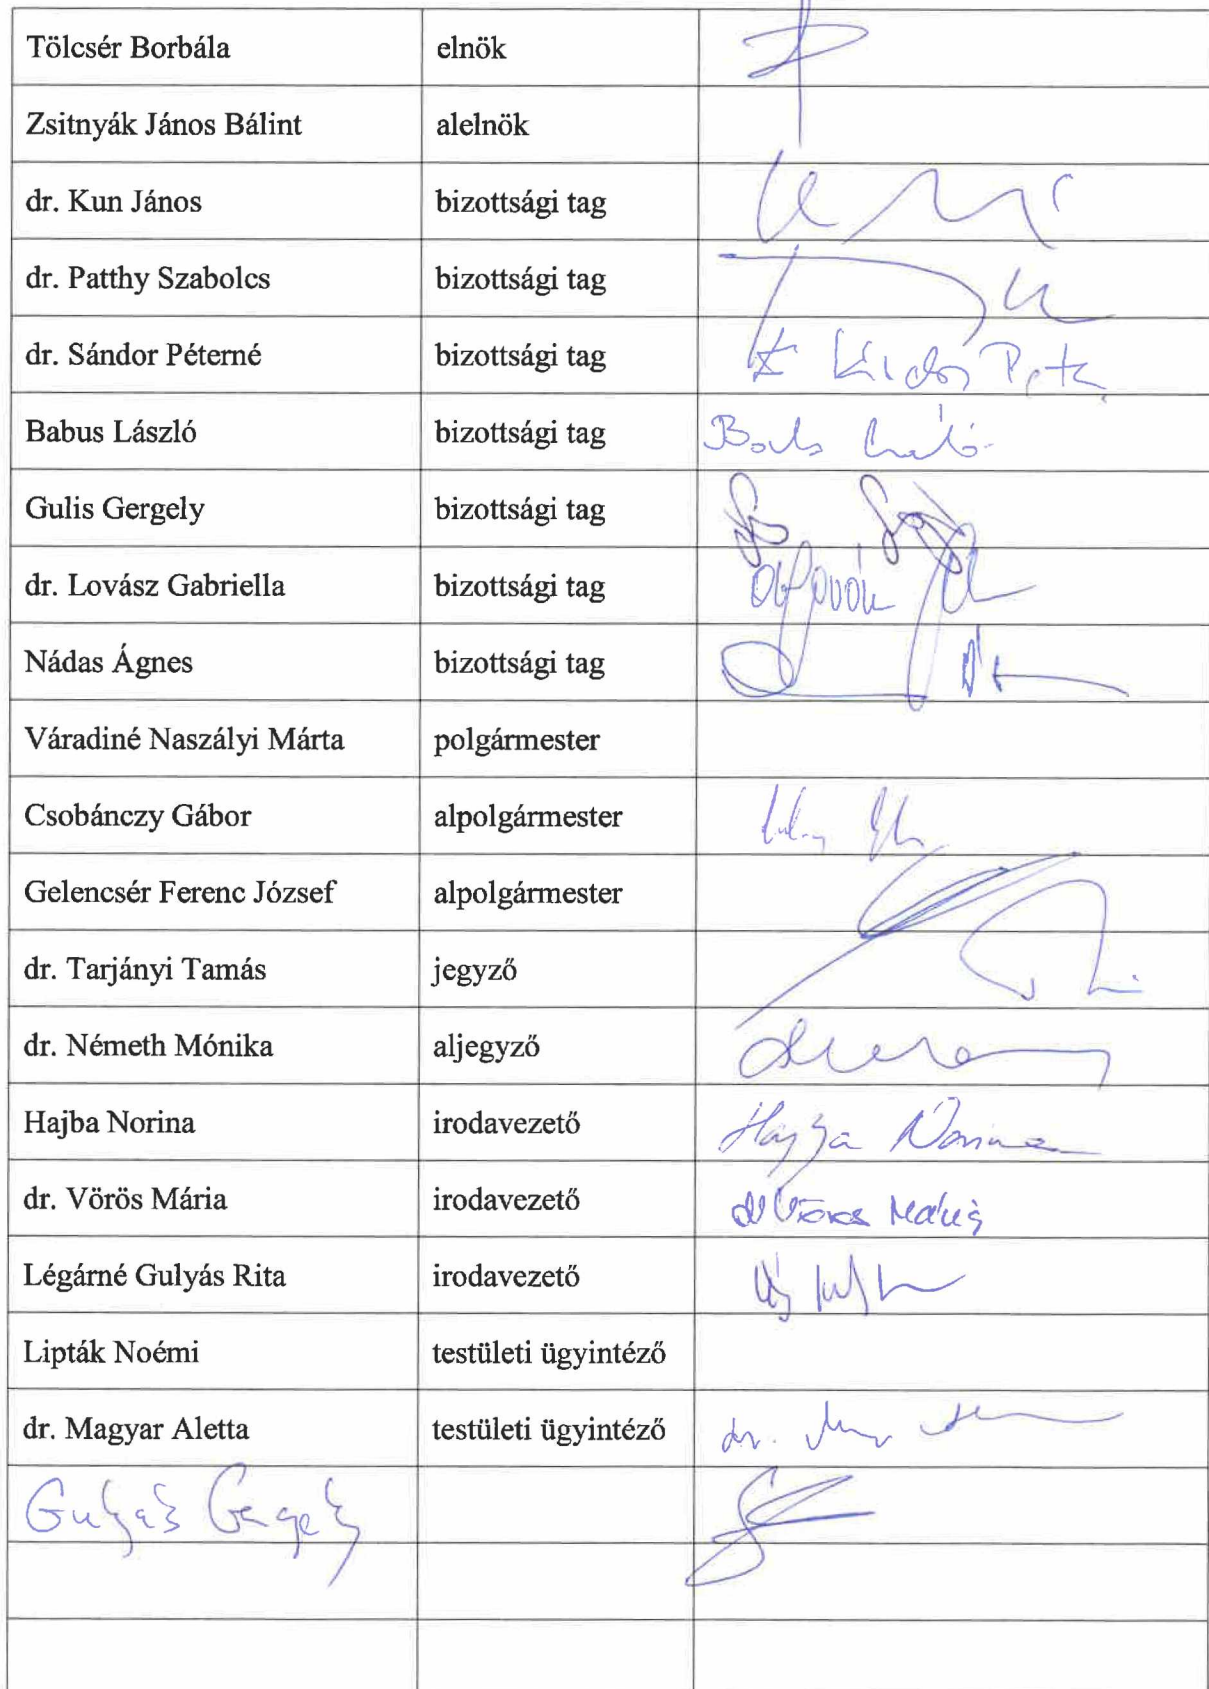 Tölcsér Borbála elnök
Zsitnyák János Bálint alelnök
dr. Kun János bizottsági tag
dr. Patthy Szabolcs bizottsági tag
dr. Sándor Péterné bizottsági tag
Babus László bizottsági tag
Gulis Gergely bizottsági tag
dr. Lovász Gabriella bizottsági tag
Nádas Ágnes bizottsági tag
Váradiné Naszályi Márta polgármester
Csobánczy Gábor alpolgármester
Gelencsér Ferenc József alpolgármester
dr. Tarjányi Tamás jegyző
dr. Németh Mónika aljegyző
Hajba Norina irodavezető Hajba Norina
dr. Vörös Mária irodavezető dr Vörös Mária
Légárné Gulyás Rita irodavezető
Lipták Noémi testületi ügyintéző
dr. Magyar Aletta testületi ügyintéző dr.
Gulyás Gergely